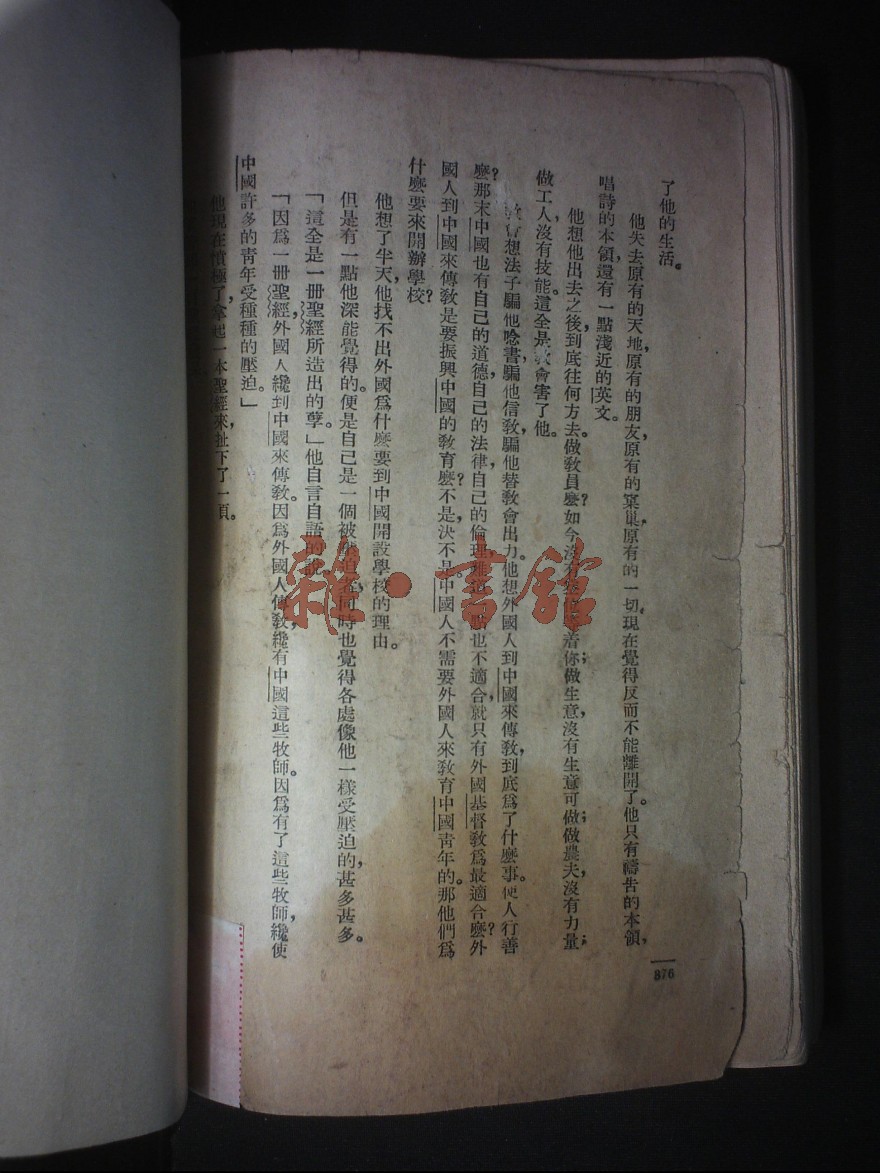 了他的生活。
他失去原有的天地，原有的朋友，原有的窠巢，原有的一切。現在覺得反而不能離開了。他只有禱告的本領，
唱詩的本領，還有一點淺近的英文。
他想他出去之後，到底往何方去？做敎員麽？如今沒有着你；做生意，沒有生意可做；做農夫，沒有力量；
做工人，沒有技能。這全是敎會害了他。
敎會想法子騙他唸書，騙他信敎，騙他替敎會出力。他想外國人到中國來傳敎，到底爲了什麽事。使人行善
麽？那末中國也有自己的道德，自己的法律，自己的倫理，難道一點也不適合，就只有外國基督敎爲最適合麽？外
國人到中國來傳敎是要振興中國的敎育麽？不是，決不是。中國人不需要外國人來敎育中國靑年的。那他們爲
什麽要來開辦學校？
他想了半天，他找不出外國爲什麽要到中國開設學校的理由。
但是有一點他深能覺得的。便是自己是一個被壓迫者，同時也覺得各處像他一樣受壓迫的，甚多甚多。
「這全是一冊聖經所造出的孽。」他自言自語的說。
「因爲一冊聖經，外國人纔到中國來傳敎。因爲外國人傳敎，纔有中國這些牧師。因爲有了這些牧師，纔使
中國許多的靑年受種種的壓迫。」
他現在憤極了，拿起一本聖經來，扯下了一頁。
876
雜·書館